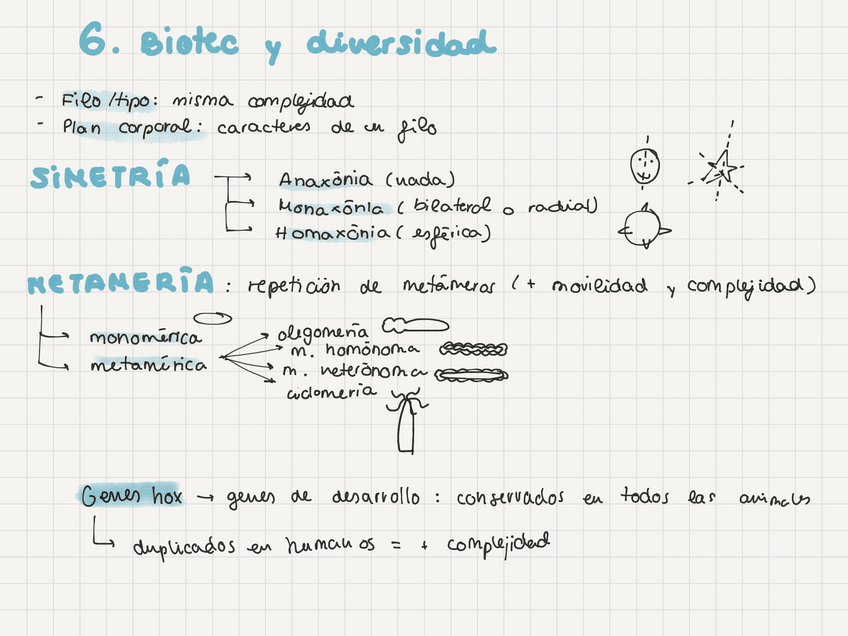 6. Biotec y diversidad
- Filo/tipo: misma complejidad
- Plan corporal: caracteres de un filo
SIMETRÍA → Anaxónia (nada)
→ Monaxónia (bilateral o radial)
→ Homaxónia (esférica)
METAMERÍA: repetición de metámeras (+ movilidad y complejidad)
→ monomérica → olegomería
→ metamérica → m. homónoma
→ m. heterónoma
ciclomería
Genes hox → genes de desarrollo: conservados en todos las animales
↳ duplicados en humanos = + complejidad